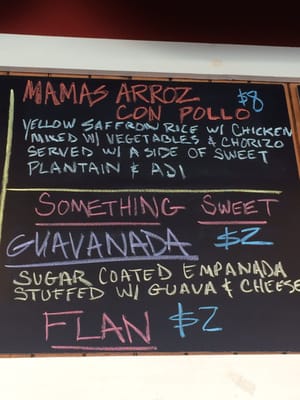 MAMAS ARROZ
CON POLLO $8
YELLOW SAFFRON RICE W/ CHICKEN
MIXED W/ VEGETABLES & CHORIZO
SERVED W/ A SIDE OF SWEET
PLANTAIN & AJI
SOMETHING SWEET
GUAVANADA $2
SUGAR COATED EMPANADA
STUFFED W/ GUAVA & CHEESE
FLAN $2